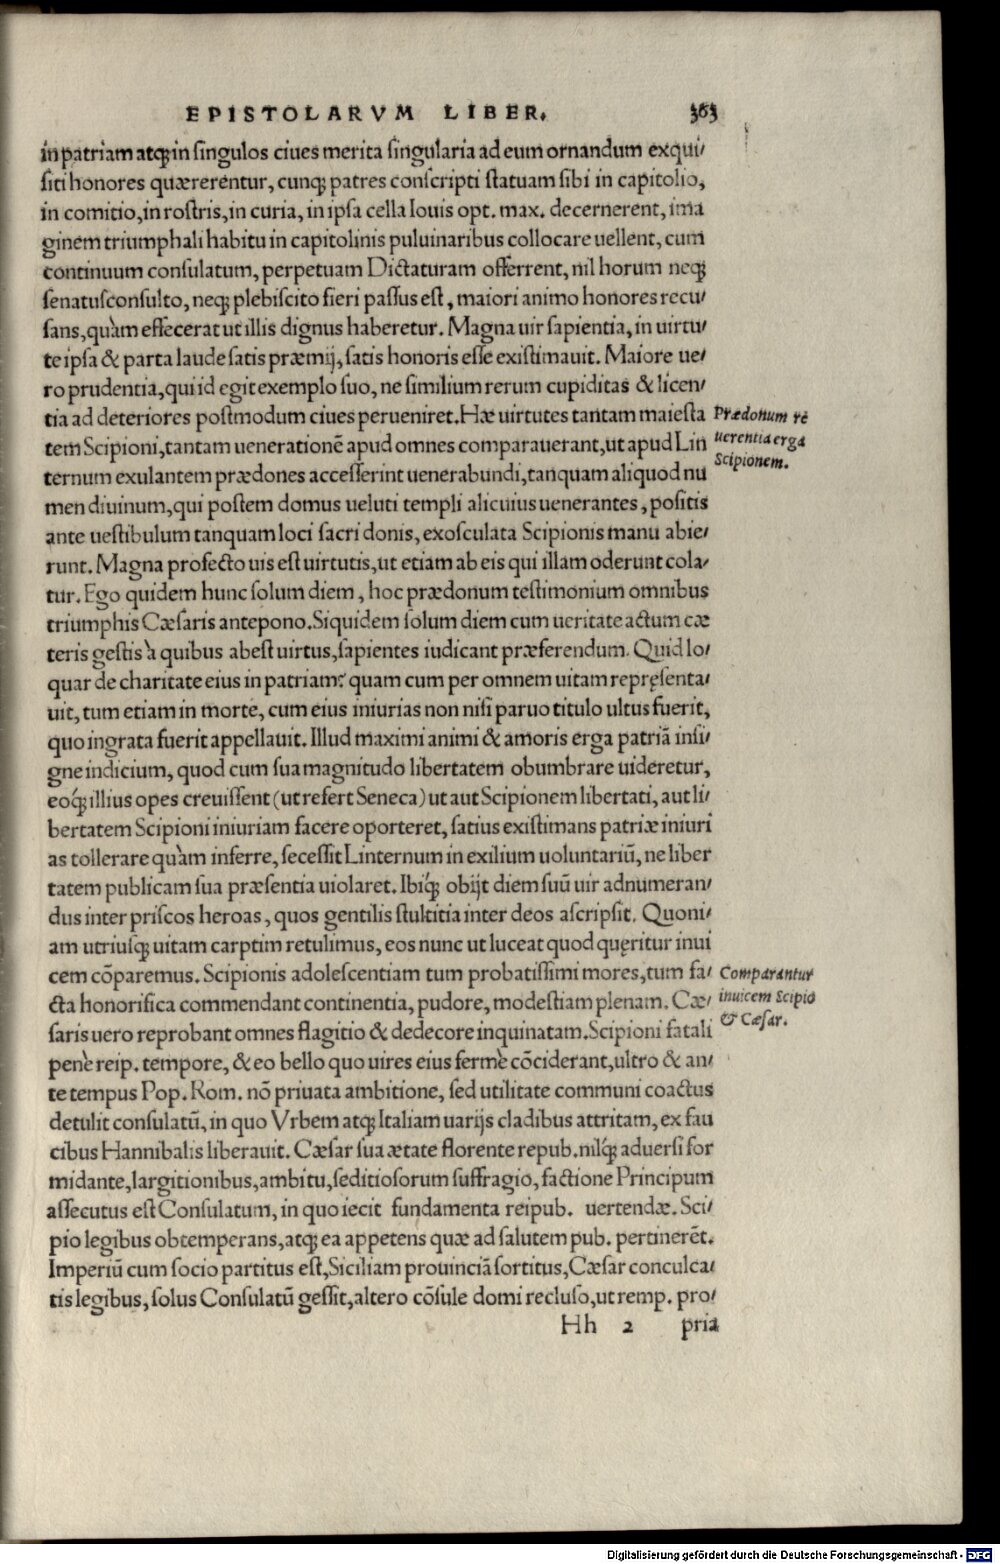 EPISTOLARVM LIBER. 363
in patriam atq̃ in singulos ciues merita singularia ad eum ornandum exqui/
siti honores quærerentur, cunq; patres conscripti statuam sibi in capitolio,
in comitio, in rostris, in curia, in ipsa cella Iouis opt. max. decernerent, ima
ginem triumphali habitu in capitolinis puluinaribus collocare uellent, cum
continuum consulatum, perpetuam Dictaturam offerrent, nil horum neq;
senatusconsulto, neq; plebiscito fieri passus est, maiori animo honores recu/
sans, quàm effecerat ut illis dignus haberetur. Magna uir sapientia, in uirtu/
te ipsa & parta laude satis præmij, satis honoris esse existimauit. Maiore ue/
ro prudentia, qui id egit exemplo suo, ne similium rerum cupiditas & licen/
tia ad deteriores postmodum ciues perueniret. Hæ uirtutes tantam maiesta
tem Scipioni, tantam uenerationẽ apud omnes comparauerant, ut apud Lin
ternum exulantem prædones accesserint uenerabundi, tanquam aliquod nu
men diuinum, qui postem domus ueluti templi alicuius uenerantes, positis
ante uestibulum tanquam loci sacri donis, exosculata Scipionis manu abie/
runt. Magna profecto uis est uirtutis, ut etiam ab eis qui illam oderunt cola/
tur. Ego quidem hunc solum diem, hoc prædonum testimonium omnibus
triumphis Cæsaris antepono. Siquidem solum diem cum ueritate actum cæ
teris gestis à quibus abest uirtus, sapientes iudicant præferendum. Quid lo/
quar de charitate eius in patriam? quam cum per omnem uitam repręsenta/
uit, tum etiam in morte, cum eius iniurias non nisi paruo titulo ultus fuerit,
quo ingrata fuerit appellauit. Illud maximi animi & amoris erga patriã insi/
gne indicium, quod cum sua magnitudo libertatem obumbrare uideretur,
eoq́; illius opes creuissent (ut refert Seneca) ut aut Scipionem libertati, aut li/
bertatem Scipioni iniuriam facere oporteret, satius existimans patriæ iniuri
as tollerare quàm inferre, secessit Linternum in exilium uoluntariũ, ne liber
tatem publicam sua præsentia uiolaret. Ibiq́; obijt diem suũ uir adnumeran/
dus inter priscos heroas, quos gentilis stultitia inter deos ascripsit. Quoni/
am utriusq; uitam carptim retulimus, eos nunc ut luceat quod quęritur inui
cem cõparemus. Scipionis adolescentiam tum probatissimi mores, tum fa/
cta honorifica commendant continentia, pudore, modestiam plenam. Cæ/
saris uero reprobant omnes flagitio & dedecore inquinatam. Scipioni fatali
penè reip. tempore, & eo bello quo uires eius fermè cõciderant, ultro & an/
te tempus Pop. Rom. nõ priuata ambitione, sed utilitate communi coactus
detulit consulatũ, in quo Vrbem atq; Italiam uarijs cladibus attritam, ex fau
cibus Hannibalis liberauit. Cæsar sua ætate florente repub. nilq́; aduersi for
midante, largitionibus, ambitu, seditiosorum suffragio, factione Principum
assecutus est Consulatum, in quo iecit fundamenta reipub. uertendæ. Sci/
pio legibus obtemperans, atq; ea appetens quæ ad salutem pub. pertinerẽt.
Imperiũ cum socio partitus est, Siciliam prouinciã sortitus, Cæsar conculca/
tis legibus, solus Consulatũ gessit, altero cõsule domi recluso, ut remp. pro/
Hh 2 pria
Prædonum rē
uerentia erga
Scipionem.
Comparantur
inuicem Scipio
& Cæsar.
Digitalisierung gefördert durch die Deutsche Forschungsgemeinschaft - DFG